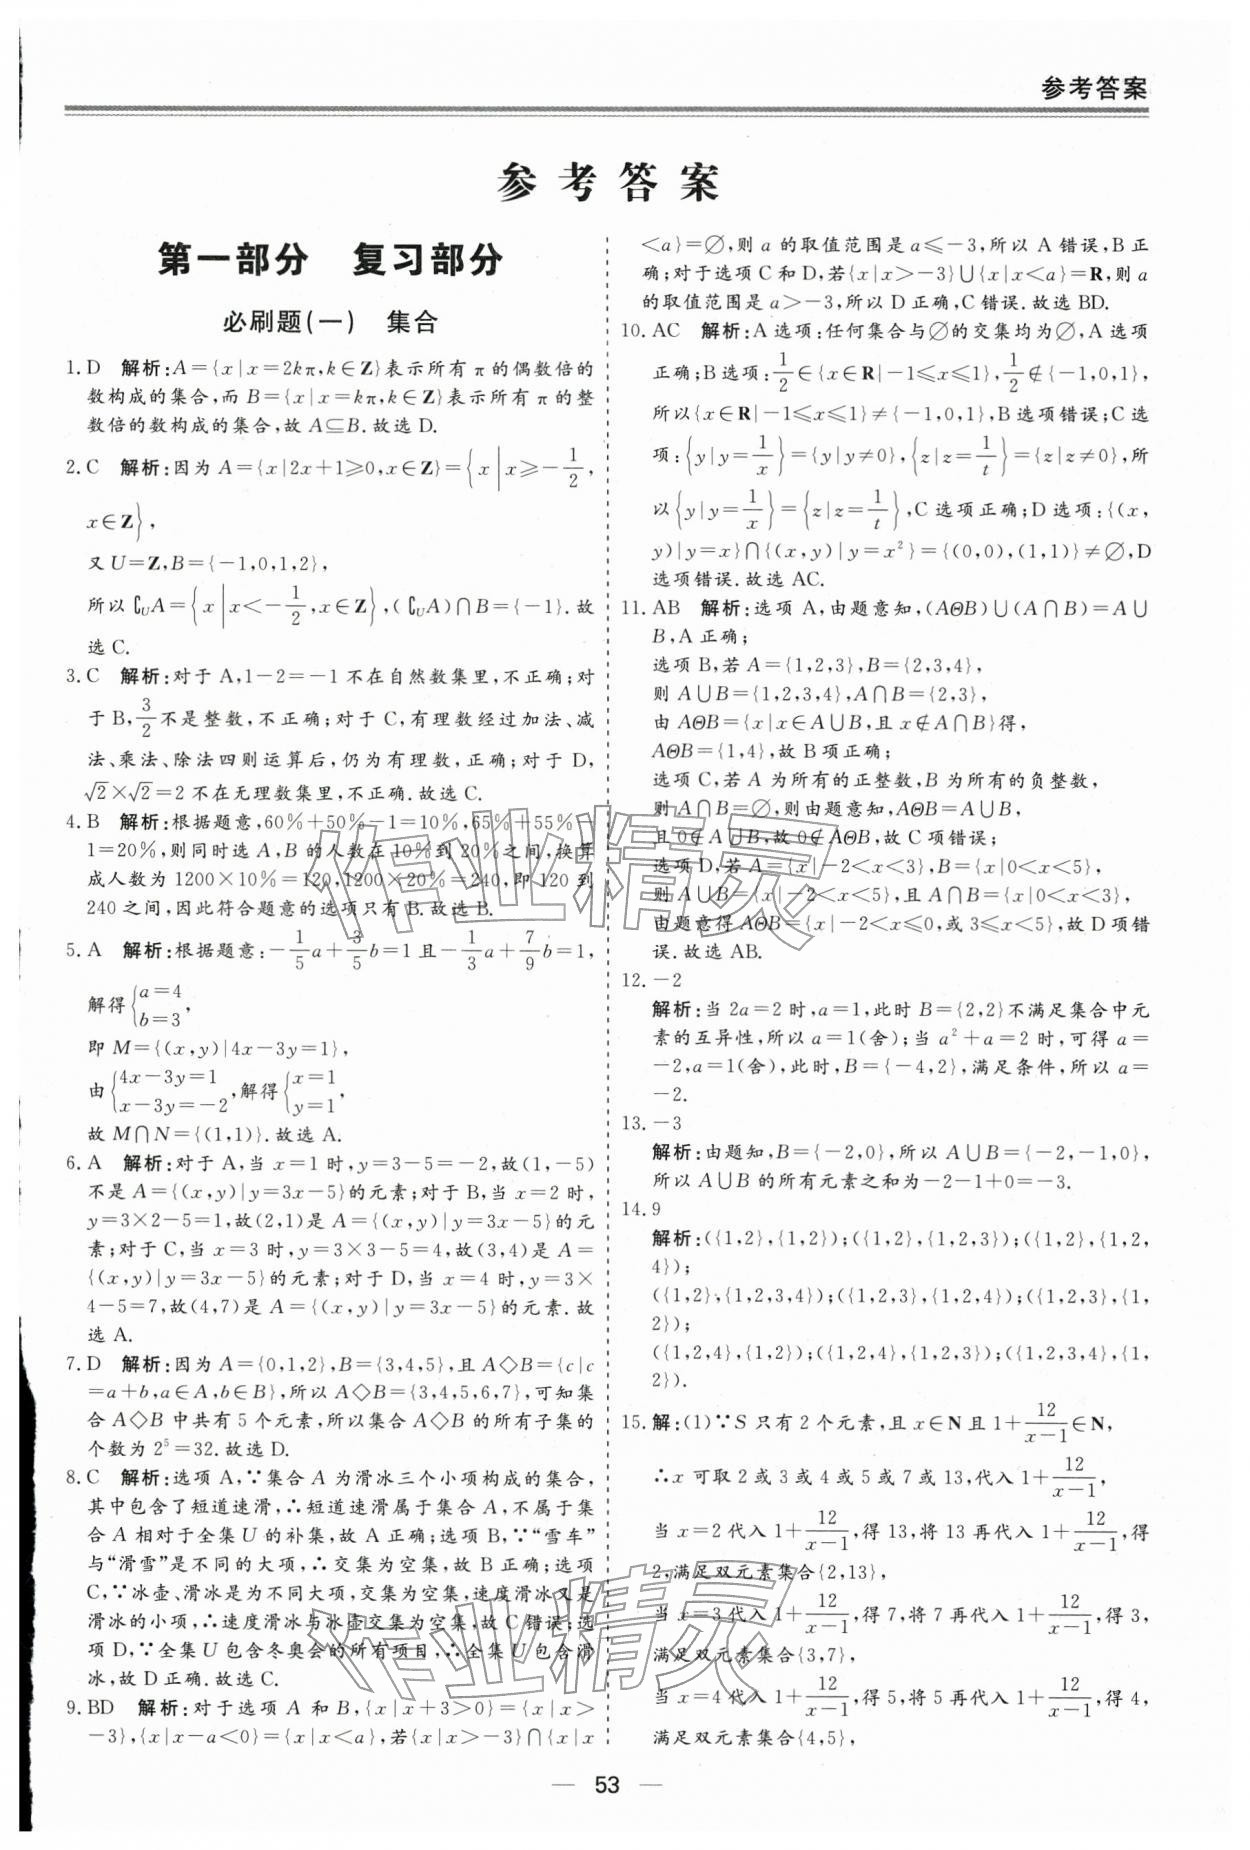 参考答案
参考答案
第一部分　复习部分
必刷题(一)　集合
1. D　解析:A={x|x=2kπ,k∈Z}表示所有 π 的偶数倍的
数构成的集合,而 B={x|x=kπ,k∈Z}表示所有 π 的整
数倍的数构成的集合,故 A⊆B.故选 D.
2. C　解析:因为 A={x|2x+1≥0,x∈Z}={x|x≥-1/2,
x∈Z},
又 U=Z,B={-1,0,1,2},
所以 ∁UA={x|x<-1/2,x∈Z},(∁UA)∩B={-1}.故
选 C.
3. C　解析:对于 A,1-2=-1 不在自然数集里,不正确;对
于 B,3/2不是整数,不正确;对于 C,有理数经过加法、减
法、乘法、除法四则运算后,仍为有理数,正确;对于 D,
√2×√2=2 不在无理数集里,不正确.故选 C.
4. B　解析:根据题意,60%+50%-1=10%,65%+55%-
1=20%,则同时选 A,B 的人数在 10%到 20%之间,换算
成人数为 1200×10%=120,1200×20%=240,即 120 到
240 之间,因此符合题意的选项只有 B.故选 B.
5. A　解析:根据题意:-1/5a+3/5b=1 且-1/3a+7/9b=1,
解得{a=4
b=3,
即 M={(x,y)|4x-3y=1},
由{4x-3y=1
x-3y=-2,解得{x=1
y=1,
故 M∩N={(1,1)}.故选 A.
6. A　解析:对于 A,当 x=1 时,y=3-5=-2,故(1,-5)
不是 A={(x,y)|y=3x-5}的元素;对于 B,当 x=2 时,
y=3×2-5=1,故(2,1)是 A={(x,y)|y=3x-5}的元
素;对于 C,当 x=3 时,y=3×3-5=4,故(3,4)是 A=
{(x,y)|y=3x-5}的元素;对于 D,当 x=4 时,y=3×
4-5=7,故(4,7)是 A={(x,y)|y=3x-5}的元素.故
选 A.
7. D　解析:因为 A={0,1,2},B={3,4,5},且 A◇B={c|c
=a+b,a∈A,b∈B},所以 A◇B={3,4,5,6,7},可知集
合 A◇B 中共有 5 个元素,所以集合 A◇B 的所有子集的
个数为 2⁵=32.故选 D.
8. C　解析:选项 A,∵集合 A 为滑冰三个小项构成的集合,
其中包含了短道速滑,∴短道速滑属于集合 A,不属于集
合 A 相对于全集 U 的补集,故 A 正确;选项 B,∵“雪车”
与“滑雪”是不同的大项,∴交集为空集,故 B 正确;选项
C,∵冰壶、滑冰是为不同大项,交集为空集,速度滑冰又是
滑冰的小项,∴速度滑冰与冰壶交集为空集,故 C 错误;选
项 D,∵全集 U 包含冬奥会的所有项目,∴全集 U 包含滑
冰,故 D 正确.故选 C.
9. BD　解析:对于选项 A 和 B,{x|x+3>0}={x|x>
-3},{x|x-a<0}={x|x<a},若{x|x>-3}∩{x|x
<a}=∅,则 a 的取值范围是 a≤-3,所以 A 错误,B 正
确;对于选项 C 和 D,若{x|x>-3}∪{x|x<a}=R,则 a
的取值范围是 a>-3,所以 D 正确,C 错误.故选 BD.
10. AC　解析:A 选项:任何集合与∅的交集均为∅,A 选项
正确;B 选项:1/2∈{x∈R|-1≤x≤1},1/2∉{-1,0,1},
所以{x∈R|-1≤x≤1}≠{-1,0,1},B 选项错误;C 选
项:{y|y=1/x}={y|y≠0},{z|z=1/t}={z|z≠0},所
以{y|y=1/x}={z|z=1/t},C 选项正确;D 选项:{(x,
y)|y=x}∩{(x,y)|y=x²}={(0,0),(1,1)}≠∅,D
选项错误.故选 AC.
11. AB　解析:选项 A,由题意知,(AΘB)∪(A∩B)=A∪
B,A 正确;
选项 B,若 A={1,2,3},B={2,3,4},
则 A∪B={1,2,3,4},A∩B={2,3},
由 AΘB={x|x∈A∪B,且 x∉A∩B}得,
AΘB={1,4},故 B 项正确;
选项 C,若 A 为所有的正整数,B 为所有的负整数,
则 A∩B=∅,则由题意知,AΘB=A∪B,
且 0∉A∪B,故 0∉AΘB,故 C 项错误;
选项 D,若 A={x|-2<x<3},B={x|0<x<5},
则 A∪B={x|-2<x<5},且 A∩B={x|0<x<3},
由题意得 AΘB={x|-2<x≤0,或 3≤x<5},故 D 项错
误.故选 AB.
12. -2
解析:当 2a=2 时,a=1,此时 B={2,2}不满足集合中元
素的互异性,所以 a=1(舍);当 a²+a=2 时,可得 a=
-2,a=1(舍),此时,B={-4,2},满足条件,所以 a=
-2.
13. -3
解析:由题知,B={-2,0},所以 A∪B={-2,-1,0},
所以 A∪B 的所有元素之和为-2-1+0=-3.
14. 9
解析:({1,2},{1,2});({1,2},{1,2,3});({1,2},{1,2,
4});
({1,2},{1,2,3,4});({1,2,3},{1,2,4});({1,2,3},{1,
2});
({1,2,4},{1,2});({1,2,4},{1,2,3});({1,2,3,4},{1,
2}).
15. 解:(1)∵S 只有 2 个元素,且 x∈N 且 1+12/(x-1)∈N,
∴x 可取 2 或 3 或 4 或 5 或 7 或 13,代入 1+12/(x-1),
当 x=2 代入 1+12/(x-1),得 13,将 13 再代入 1+12/(x-1),得
2,满足双元素集合{2,13},
当 x=3 代入 1+12/(x-1),得 7,将 7 再代入 1+12/(x-1),得 3,
满足双元素集合{3,7},
当 x=4 代入 1+12/(x-1),得 5,将 5 再代入 1+12/(x-1),得 4,
满足双元素集合{4,5},
— 53 —
作业精灵
作业精灵